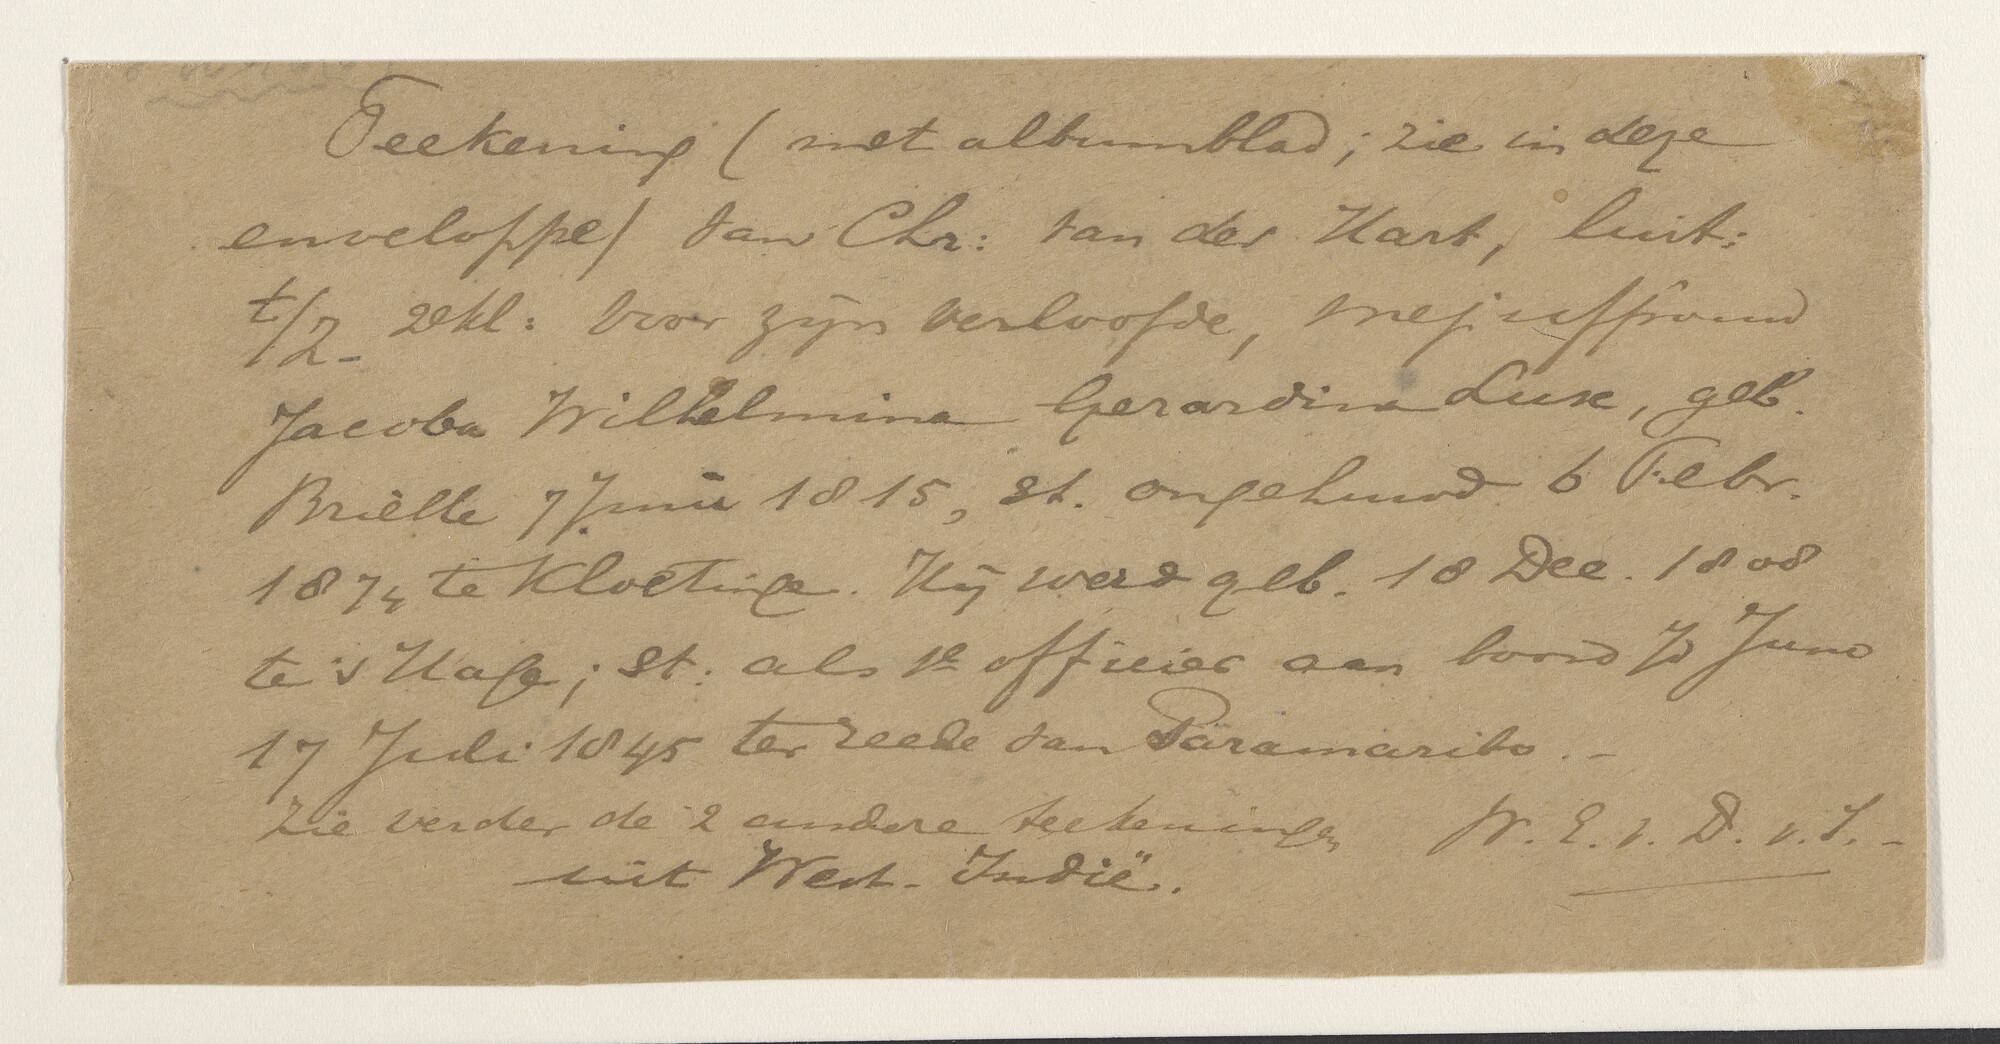 Teekening (met albumblad; zie in deze
enveloppe) van Chr: van der Hart, luit:
t/Z 2ekl: voor zijn verloofde, mejuffrouw
Jacoba Wilhelmina Gerardina Luse, geb.
Brielle 7 Juni 1815, st. ongehuwd 6 Febr.
1874 te Kloetinge. Hij werd geb. 18 Dec. 1808
te 's Hage; st. als 1e officier aan boord Juno
17 Juli 1845 ter reede van Paramaribo. -
Zie verder de 2 andere teekeningen W. E. v. D. v. I. -
uit West-Indië.